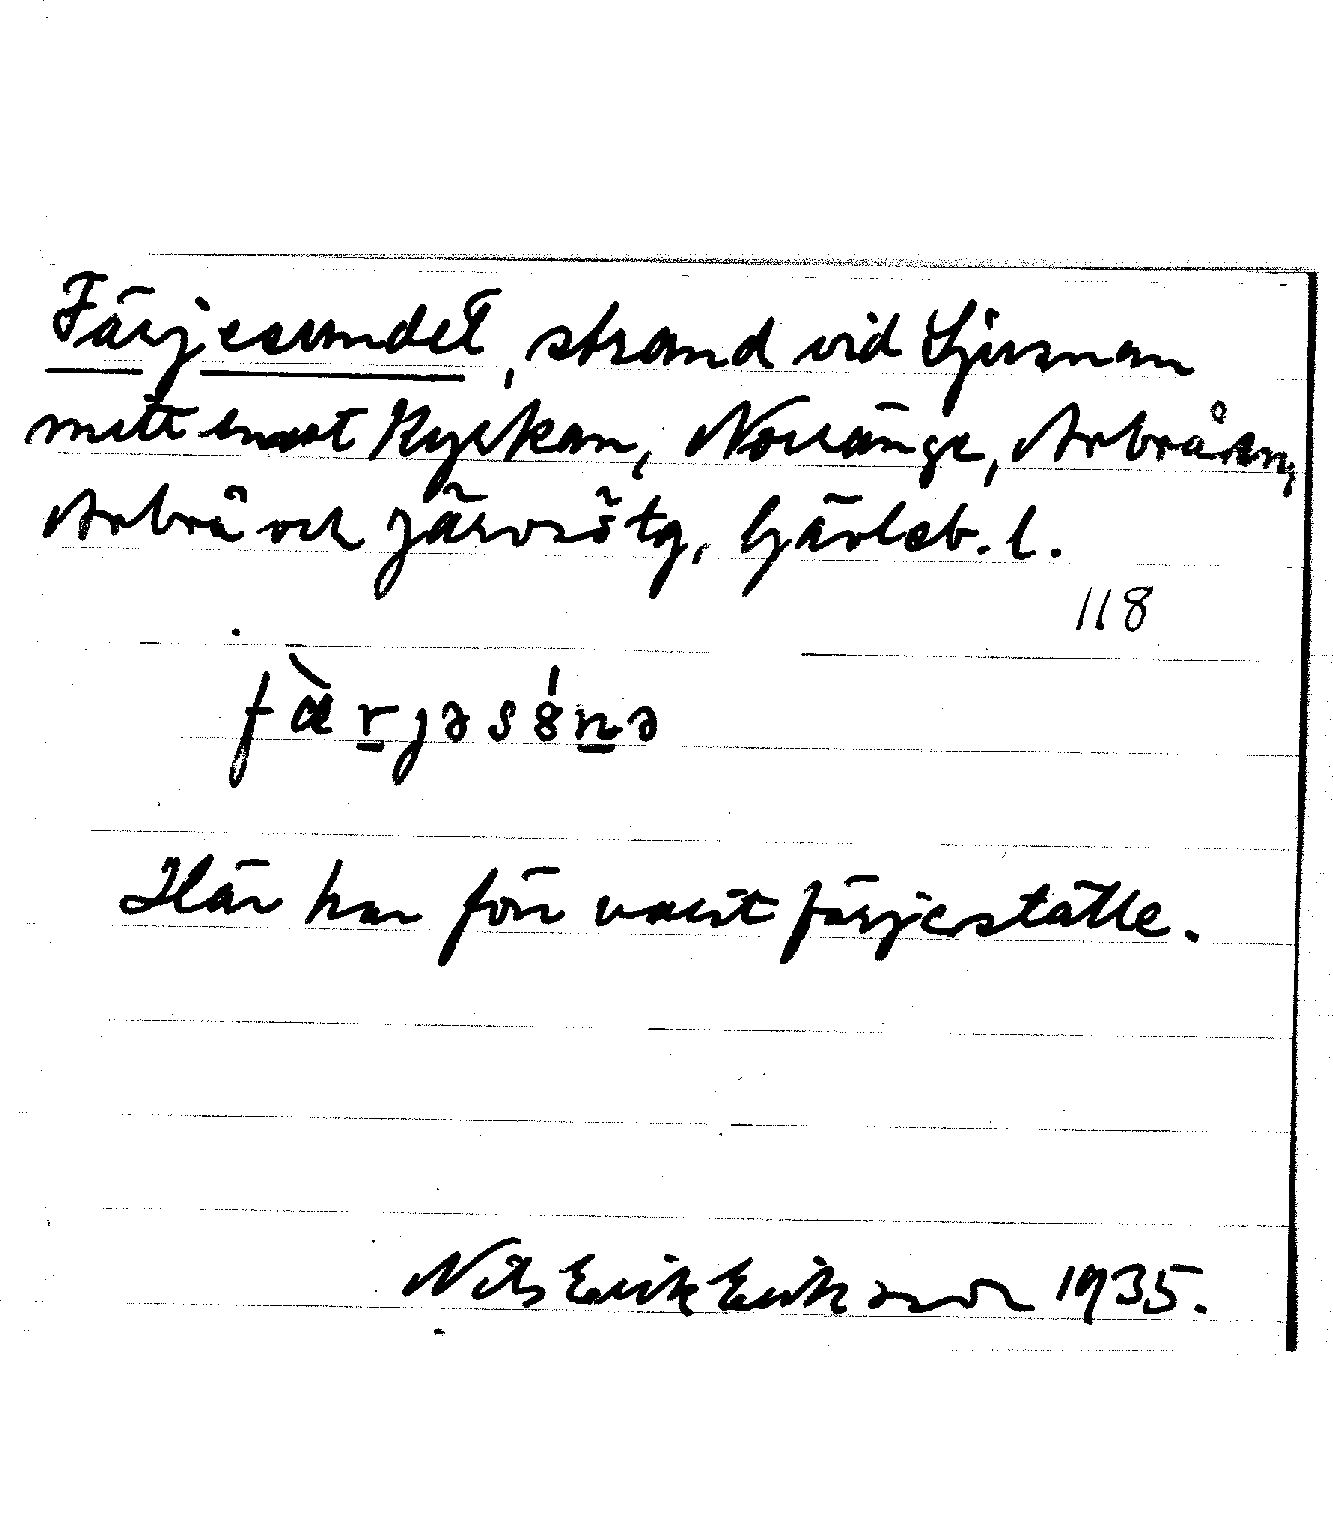 Färjesundet, strand vid Ljusnan
mitt emot Kyrkan, Norränge, Arbrå sn,
Arbrå och Järvsö tg, Gävleb. l.
118
fæ̀r̲jəsȣ́n̲ə
Här har förr varit färjeställe.
Nils Erik Eriksson 1935.